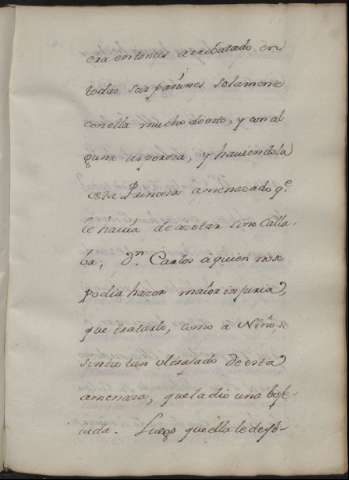 era entonces arrebatado en
todas sus paciones solamente
con ella mucho deceo, y con al
guna aspereza, y haviendola
esta Princesa amenazado q.e
le havia de azotar sino calla-
ba, D.n Carlos à quien no se
podia hazer maior injuria,
que tratarlo, como a Niño, se
sintio tan ultrajado de esta
amenaza, que la dio una bofe-
tada. Luego que ella le dejó-